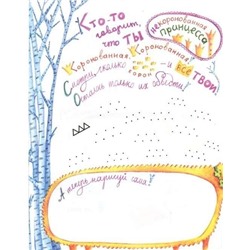 Кто-то
говорит,
что ты
некоронованная
принцесса
Коронованная, Коронованная!
Смотри, сколько корон - и все твои!
Осталось только их обвести!
А теперь нарисуй сама!